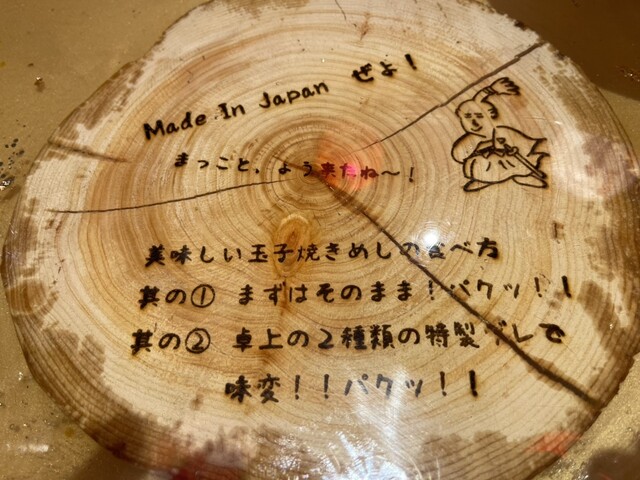 Made In Japan ぜよ！
まっこと、よう来たね～！
美味しい玉子焼きめしの食べ方
其の① まずはそのまま！パクッ！！
其の② 卓上の２種類の特製ダレで
味変！！パクッ！！